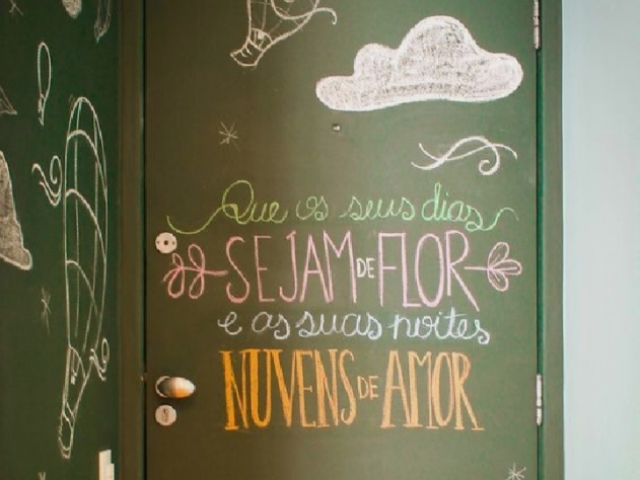 Que os seus dias
SEJAM DE FLOR
e as suas noites
NUVENS DE AMOR